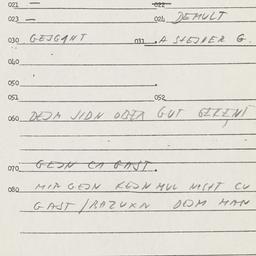 021 — 022
023 — 024 DEMULT
030 GEJGANT 031 A STEJNER G.
040
050
051 052
060 DEJM JIDN ODER GUT GEKENT
070 GEJN CA GAST
080 MIR GEJN KEJN MUL NICHT CU
GAST / DEJM MAN